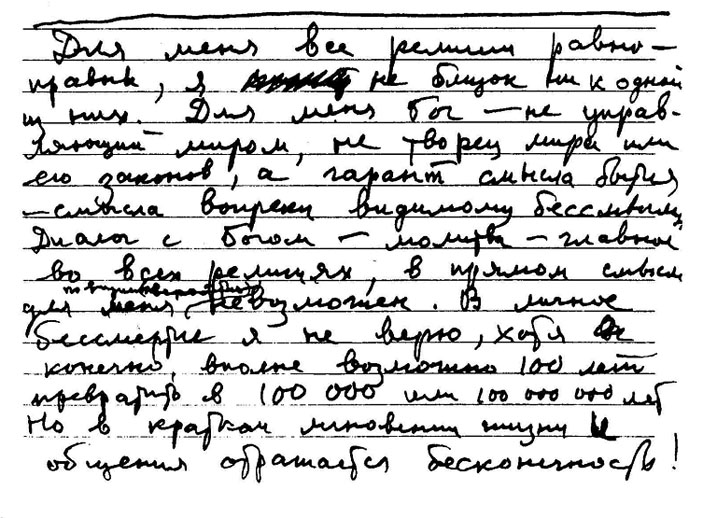 Для меня все религии равно-
правны, я не близок ни к одной
из них. Для меня Бог — не управ-
ляющий миром, не творец мира или
его законов, а гарант смысла бытия
— смысла вопреки видимому бессмыслию.
Диалог с Богом — молитва — главное
во всех религиях, в прямом смысле
для меня, невозможен. В личное
бессмертие я не верю, хотя
конечно, вполне возможно 100 лет
превратить в 100 000 или 100 000 000 лет
Но в кратком мгновении жизни и
общения отражается бесконечность!